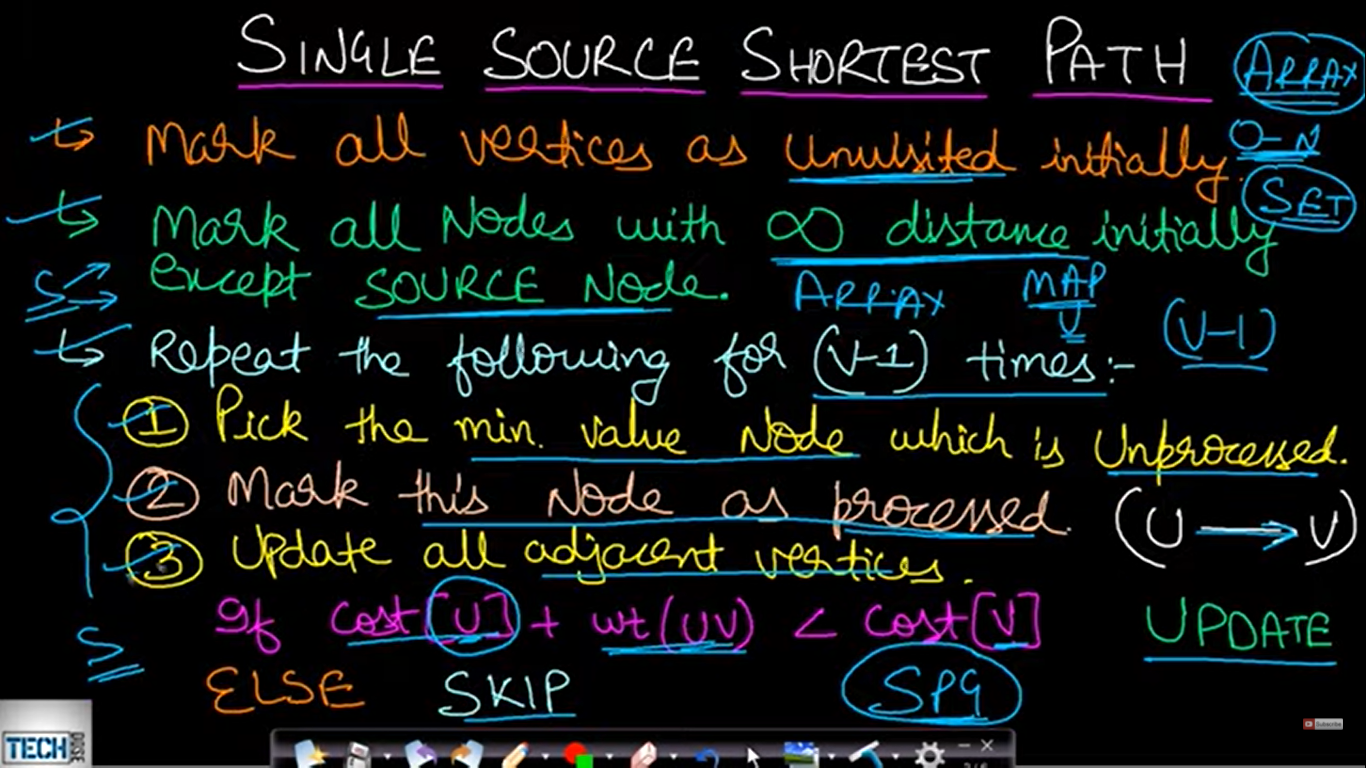 SINGLE SOURCE SHORTEST PATH
ARRAY
Mark all vertices as Unvisited initially.
0-N
SET
Mark all Nodes with ∞ distance initially
except SOURCE Node.
S
ARRAY
MAP
V
(V-1)
Repeat the following for (V-1) times:-
① Pick the min. value Node which is Unprocessed.
② Mark this Node as processed.
(U → V)
③ Update all adjacent vertices.
If cost[U] + wt(UV) < cost[V] UPDATE
S
ELSE SKIP
SPG
TECH DOSE
Subscribe